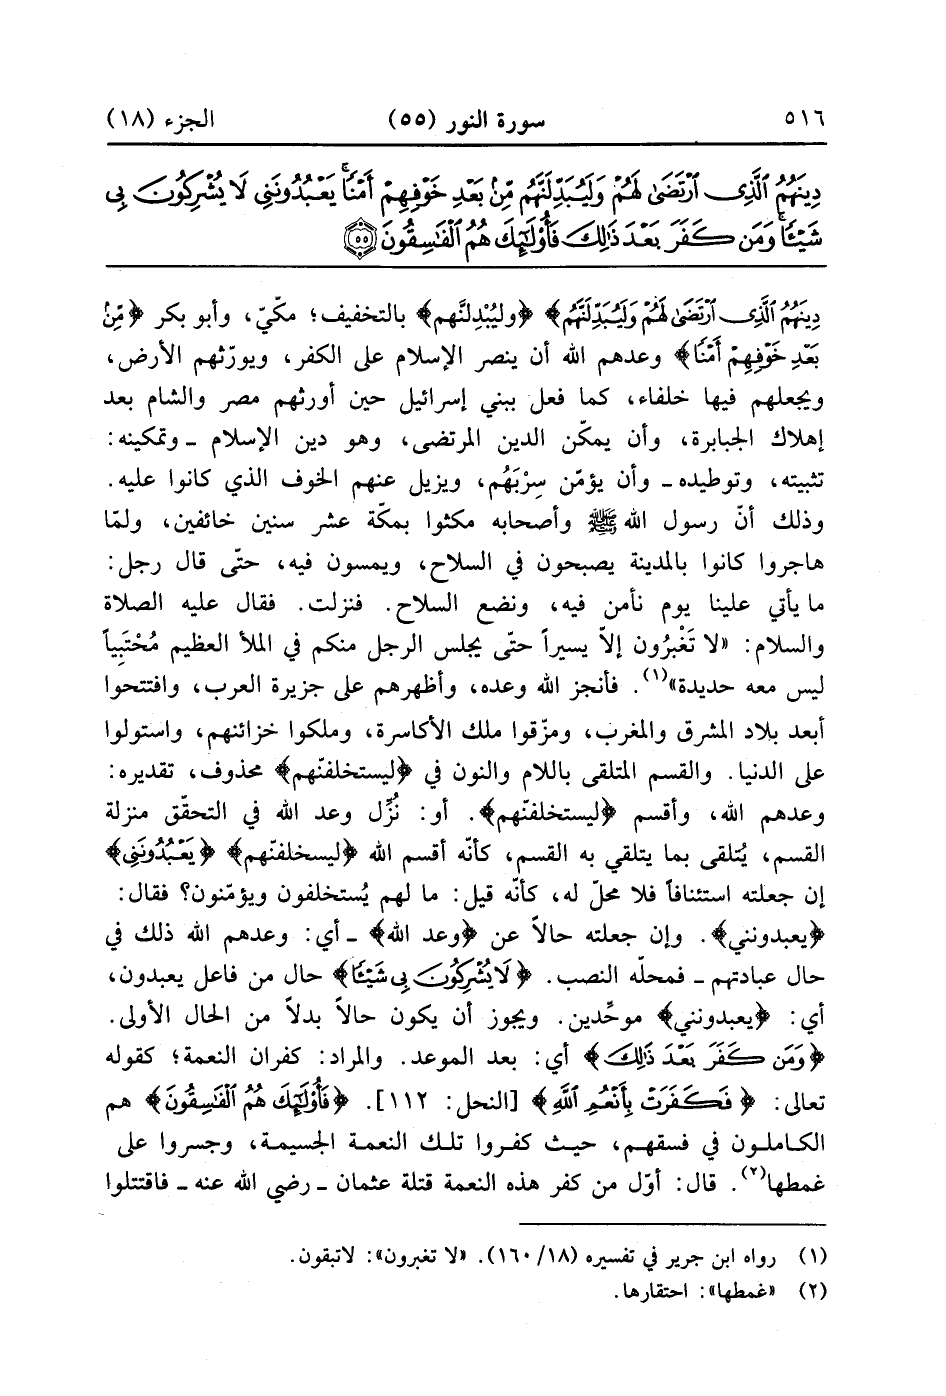 ٥١٦ سورة النور (٥٥) الجزء (١٨)
دِينَهُمُ ٱلَّذِى ٱرْتَضَىٰ لَهُمْ وَلَيُبَدِّلَنَّهُم مِّنۢ بَعْدِ خَوْفِهِمْ أَمْنًا ۚ يَعْبُدُونَنِى لَا يُشْرِكُونَ بِى
شَيْـًٔا ۚ وَمَن كَفَرَ بَعْدَ ذَٰلِكَ فَأُو۟لَـٰٓئِكَ هُمُ ٱلْفَـٰسِقُونَ ﴿٥٥﴾
دِينَهُمُ ٱلَّذِى ٱرْتَضَىٰ لَهُمْ وَلَيُبَدِّلَنَّهُم﴾ ﴿وليُبْدِلنَّهم﴾ بالتخفيف؛ مكّيّ، وأبو بكر ﴿مِّنۢ
بَعْدِ خَوْفِهِمْ أَمْنًا﴾ وعدهم الله أن ينصر الإسلام على الكفر، ويورّثهم الأرض،
ويجعلهم فيها خلفاء، كما فعل ببني إسرائيل حين أورثهم مصر والشام بعد
إهلاك الجبابرة، وأن يمكّن الدين المرتضى، وهو دين الإسلام ـ وتمكينه:
تثبيته، وتوطيده ـ وأن يؤمّن سِرْبَهُم، ويزيل عنهم الخوف الذي كانوا عليه.
وذلك أنّ رسول الله ﷺ وأصحابه مكثوا بمكة عشر سنين خائفين، ولمّا
هاجروا كانوا بالمدينة يصبحون في السلاح، ويمسون فيه، حتّى قال رجل:
ما يأتي علينا يوم نأمن فيه، ونضع السلاح. فنزلت. فقال عليه الصلاة
والسلام: «لا تَغْبرُون إلاّ يسيراً حتّى يجلس الرجل منكم في الملأ العظيم مُحْتَبِياً
ليس معه حديدة»(١). فأنجز الله وعده، وأظهرهم على جزيرة العرب، وافتتحوا
أبعد بلاد المشرق والمغرب، ومزّقوا ملك الأكاسرة، وملكوا خزائنهم، واستولوا
على الدنيا. والقسم المتلقى باللام والنون في ﴿ليستخلفنّهم﴾ محذوف، تقديره:
وعدهم الله، وأقسم ﴿ليستخلفنّهم﴾. أو: نُزِّل وعد الله في التحقّق منزلة
القسم، يُتلقى بما يتلقي به القسم، كأنّه أقسم الله ﴿ليسخلفنّهم﴾ ﴿يَعْبُدُونَنِى﴾
إن جعلته استئنافاً فلا محلّ له، كأنّه قيل: ما لهم يُستخلفون ويؤمّنون؟ فقال:
﴿يعبدونني﴾. وإن جعلته حالاً عن ﴿وعد الله﴾ ـ أي: وعدهم الله ذلك في
حال عبادتهم ـ فمحلّه النصب. ﴿لَا يُشْرِكُونَ بِى شَيْـًٔا﴾ حال من فاعل يعبدون،
أي: ﴿يعبدونني﴾ موحّدين. ويجوز أن يكون حالاً بدلاً من الحال الأولى.
﴿وَمَن كَفَرَ بَعْدَ ذَٰلِكَ﴾ أي: بعد الموعد. والمراد: كفران النعمة؛ كقوله
تعالى: ﴿فَكَفَرَتْ بِأَنْعُمِ ٱللَّهِ﴾ [النحل: ١١٢]. ﴿فَأُو۟لَـٰٓئِكَ هُمُ ٱلْفَـٰسِقُونَ﴾ هم
الكاملون في فسقهم، حيث كفروا تلك النعمة الجسيمة، وجسروا على
غمطها(٢). قال: أوّل من كفر هذه النعمة قتلة عثمان ـ رضي الله عنه ـ فاقتتلوا
(١) رواه ابن جرير في تفسيره (١٨/١٦٠). «لا تغبرون»: لاتبقون.
(٢) «غمطها»: احتقارها.